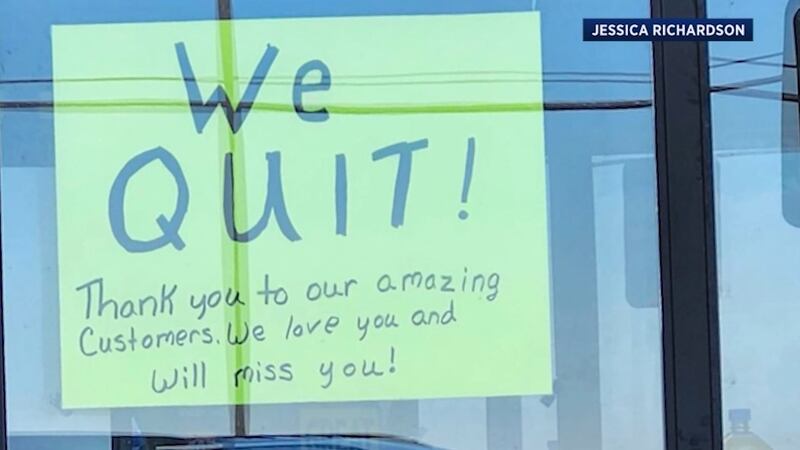 JESSICA RICHARDSON
We
QUIT!
Thank you to our amazing
Customers. We love you and
Will miss you!